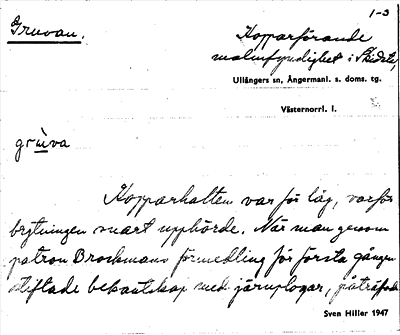 1-3
Gruvan.
Kopparförande
malmfyndighet i Skidsta,
Ullångers sn, Ångermanl. s. doms. tg.
Västernorrl. l.
grùva
Kopparhalten var för låg, varför
brytningen snart upphörde. När man genom
patron Brockmans förmedling för första gången
stiftade bekantskap med järnplogar, påträffade
Sven Hiller 1947